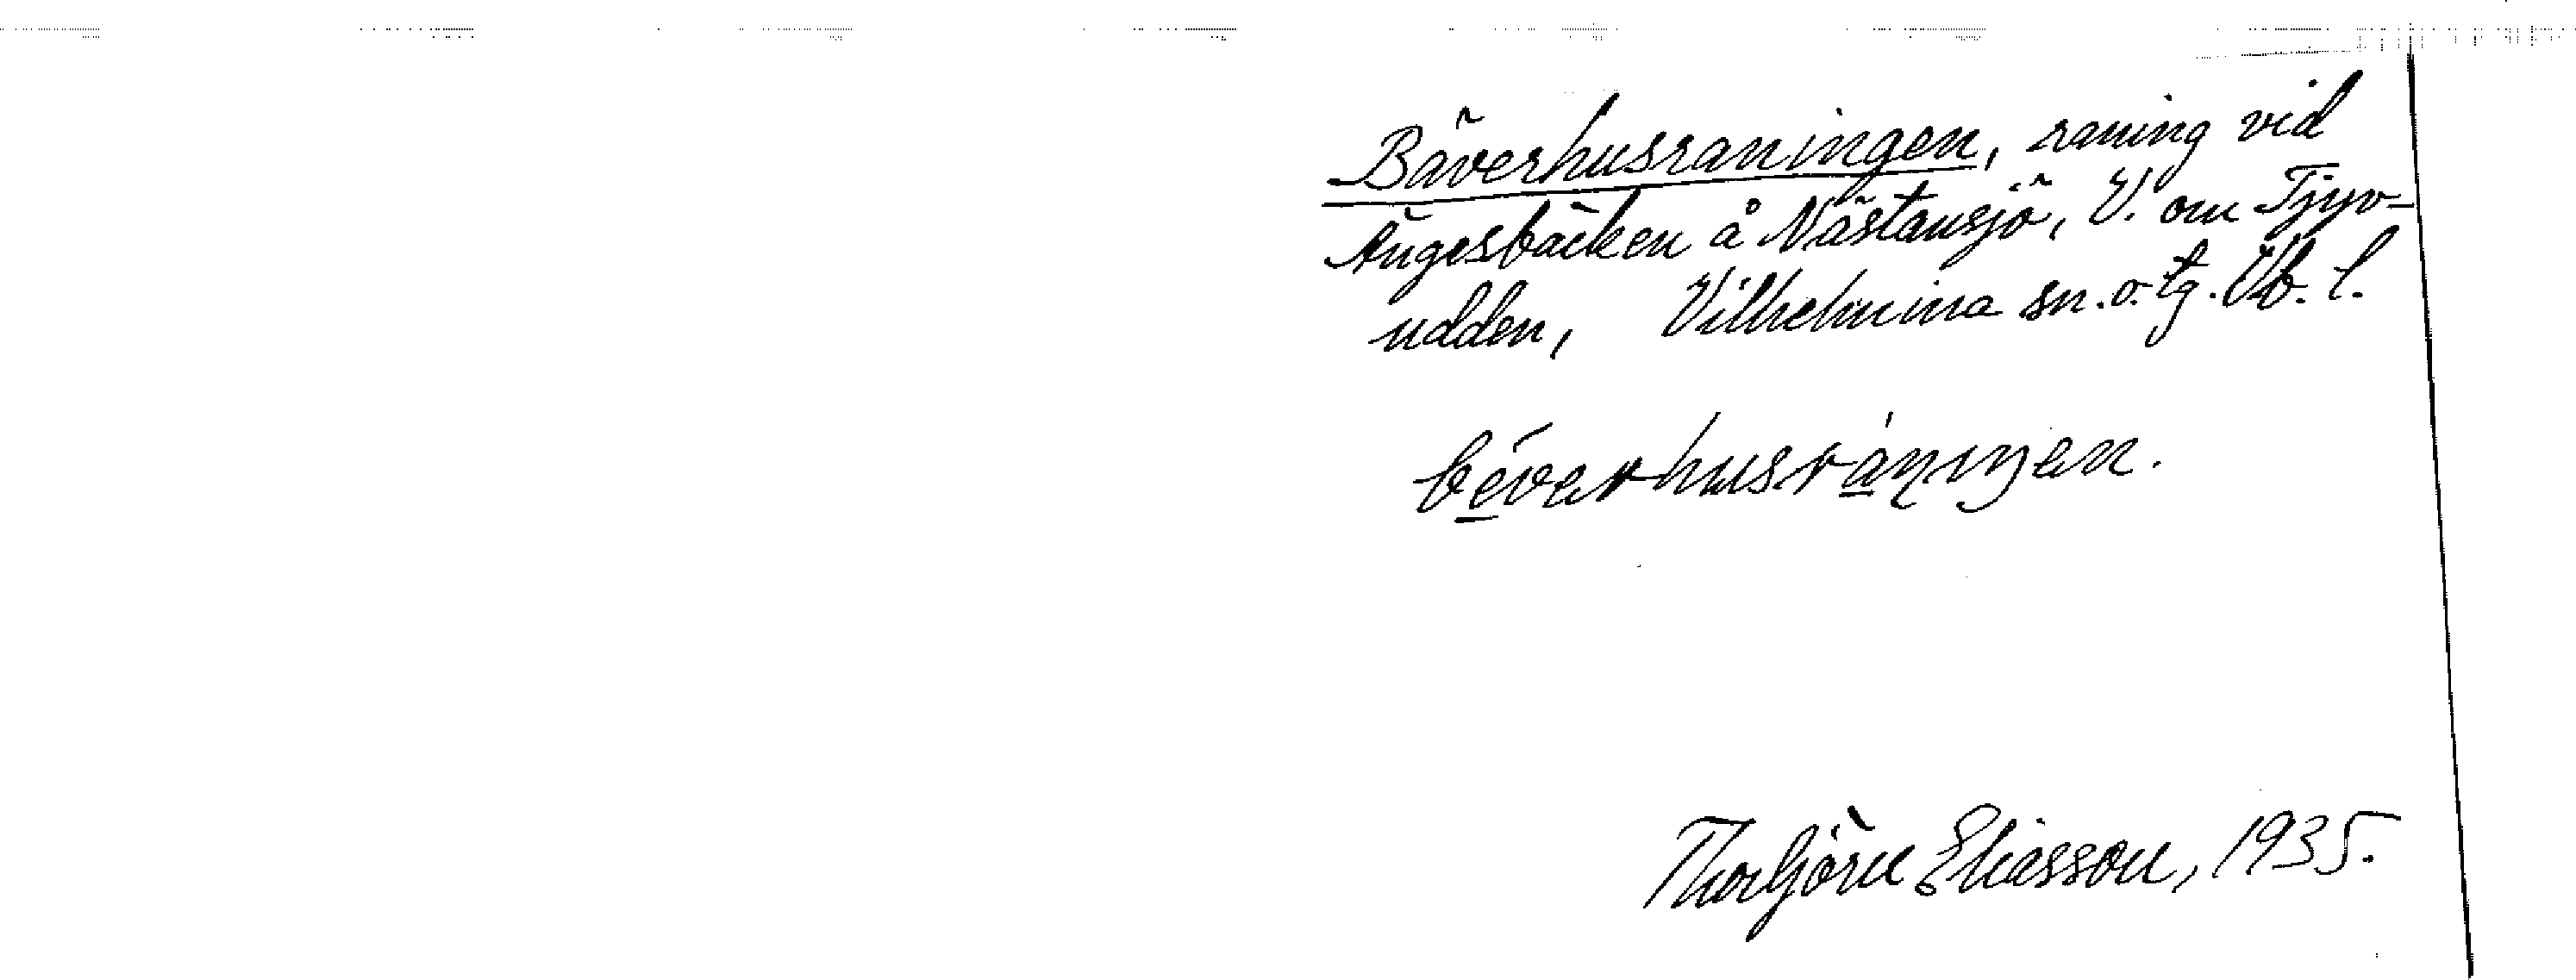 Bäverhusraningen, raning vid
Ängesbäcken å Nästansjö, V. om Tjyv-
udden, Vilhelmina sn. o. tg. Vb. l.
bévarhusránıŋen.
Thorbjörn Eliasson, 1935.